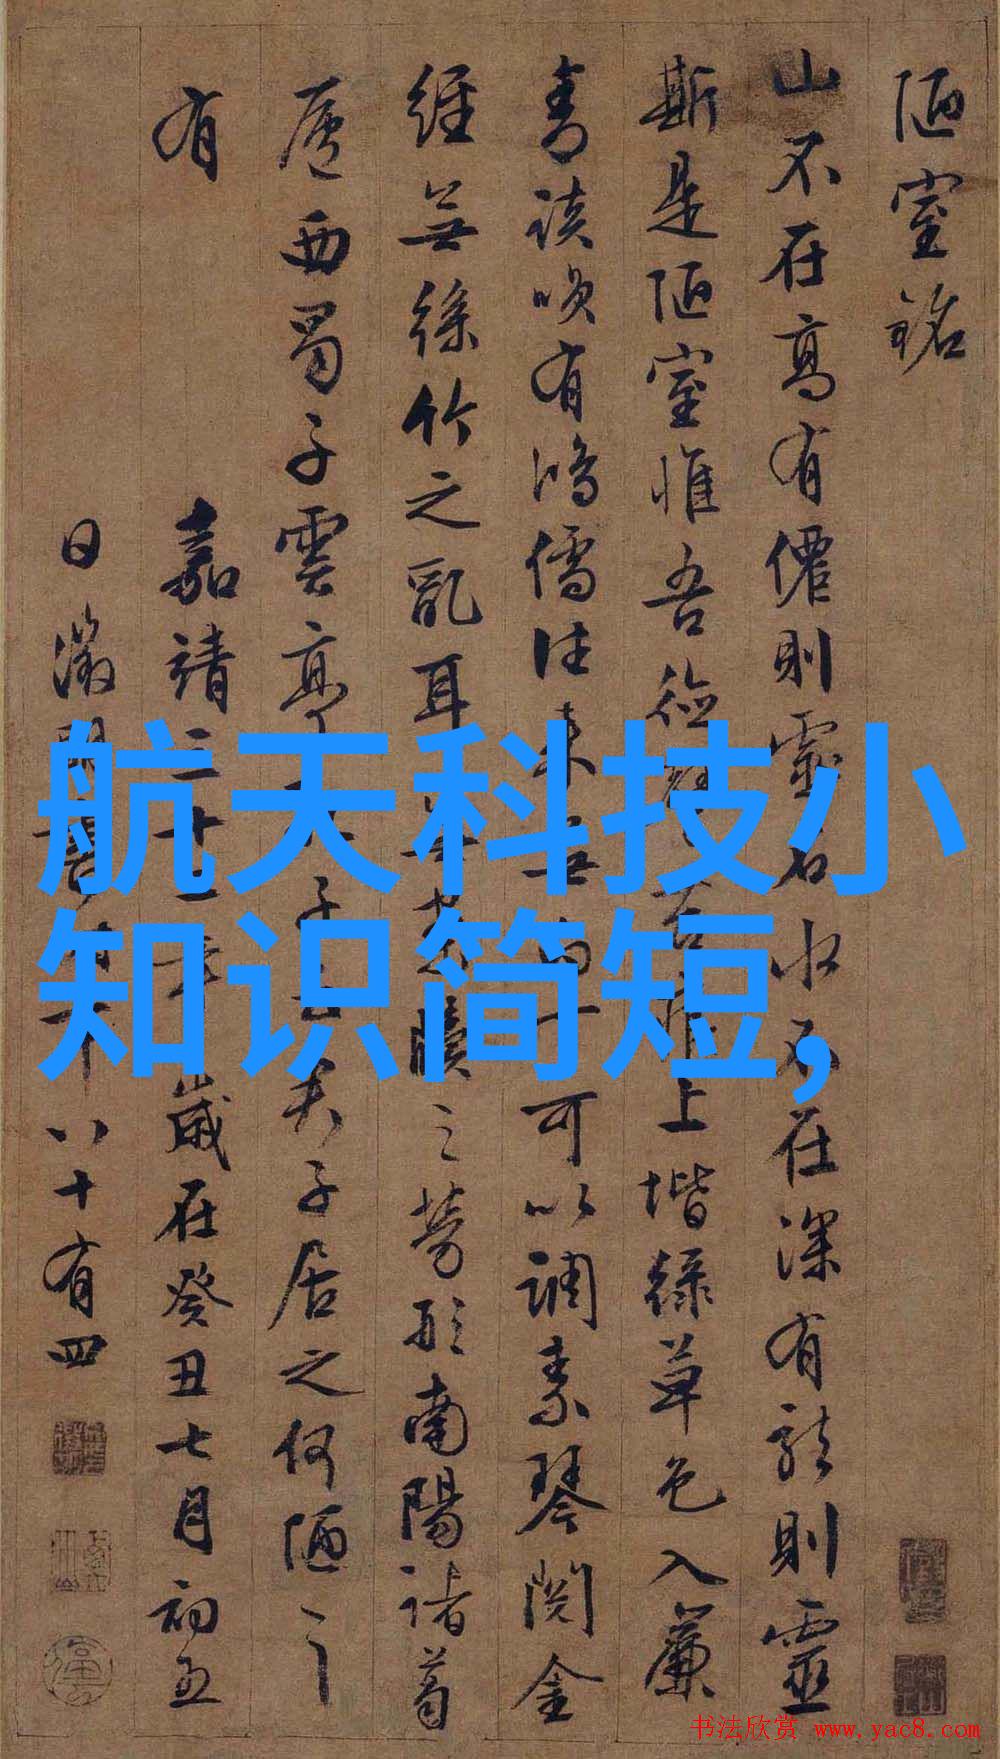 陋室銘
山不在高有僊則靈名水不在深有龍則靈
斯是陋室惟吾德馨苔痕上堦綠草色入簾
青談咲有鴻儒往來無白丁可以調素琴閱金
經無絲竹之亂耳無案牘之勞形南陽諸葛
廬西蜀子雲亭孔子云君子居之何陋之
有
嘉靖三十二年歲在癸丑七月初五
日徵明書時年八十有四
航天科技小
知识简短,
书法欣赏 www.yac8.com